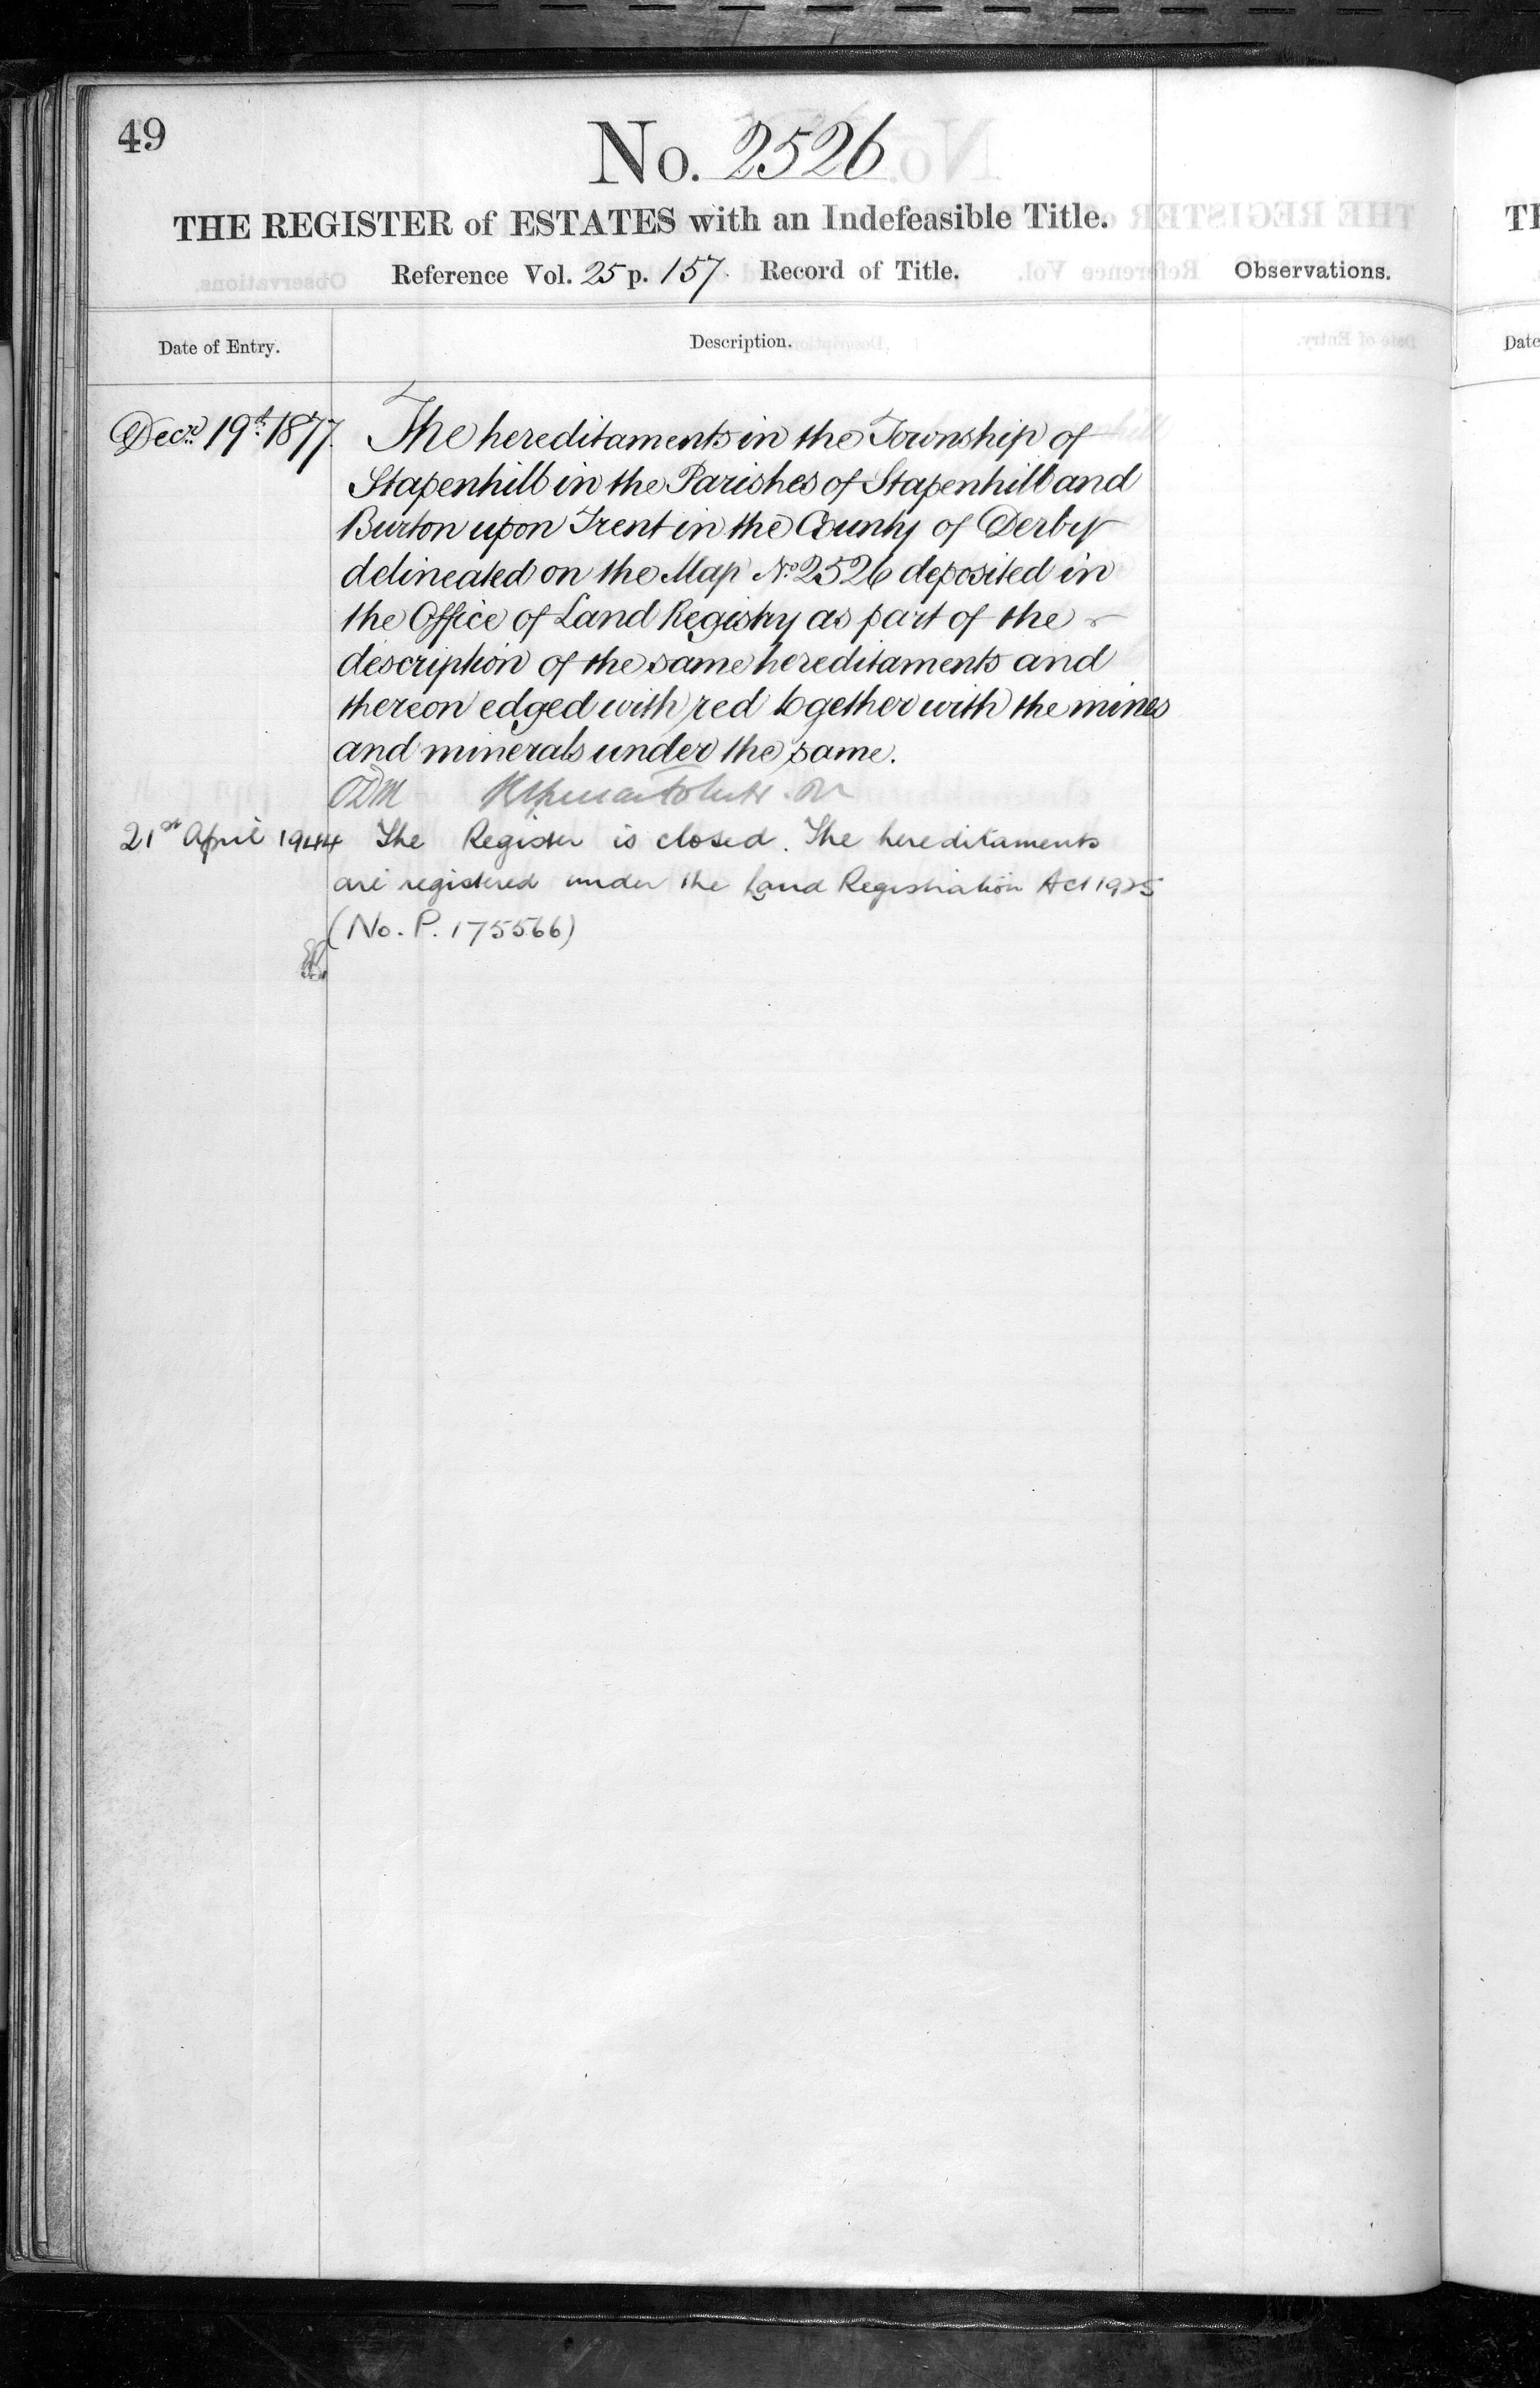 49
No. 2526
THE REGISTER of ESTATES with an Indefeasible Title.
Reference Vol. 25 p. 157. Record of Title.
Observations.
Date of Entry.
Description.
Decr. 19th 1877. The hereditaments in the Township of
Stapenhill in the Parishes of Stapenhill and
Burton upon Trent in the County of Derby
delineated on the Map No. 2526 deposited in
the Office of Land Registry as part of the
description of the same hereditaments and
thereon edged with red together with the mines
and minerals under the same.
21st April 1944 The Register is closed. The hereditaments
are registered under the Land Registration Act 1925
(No. P. 175566)
Date